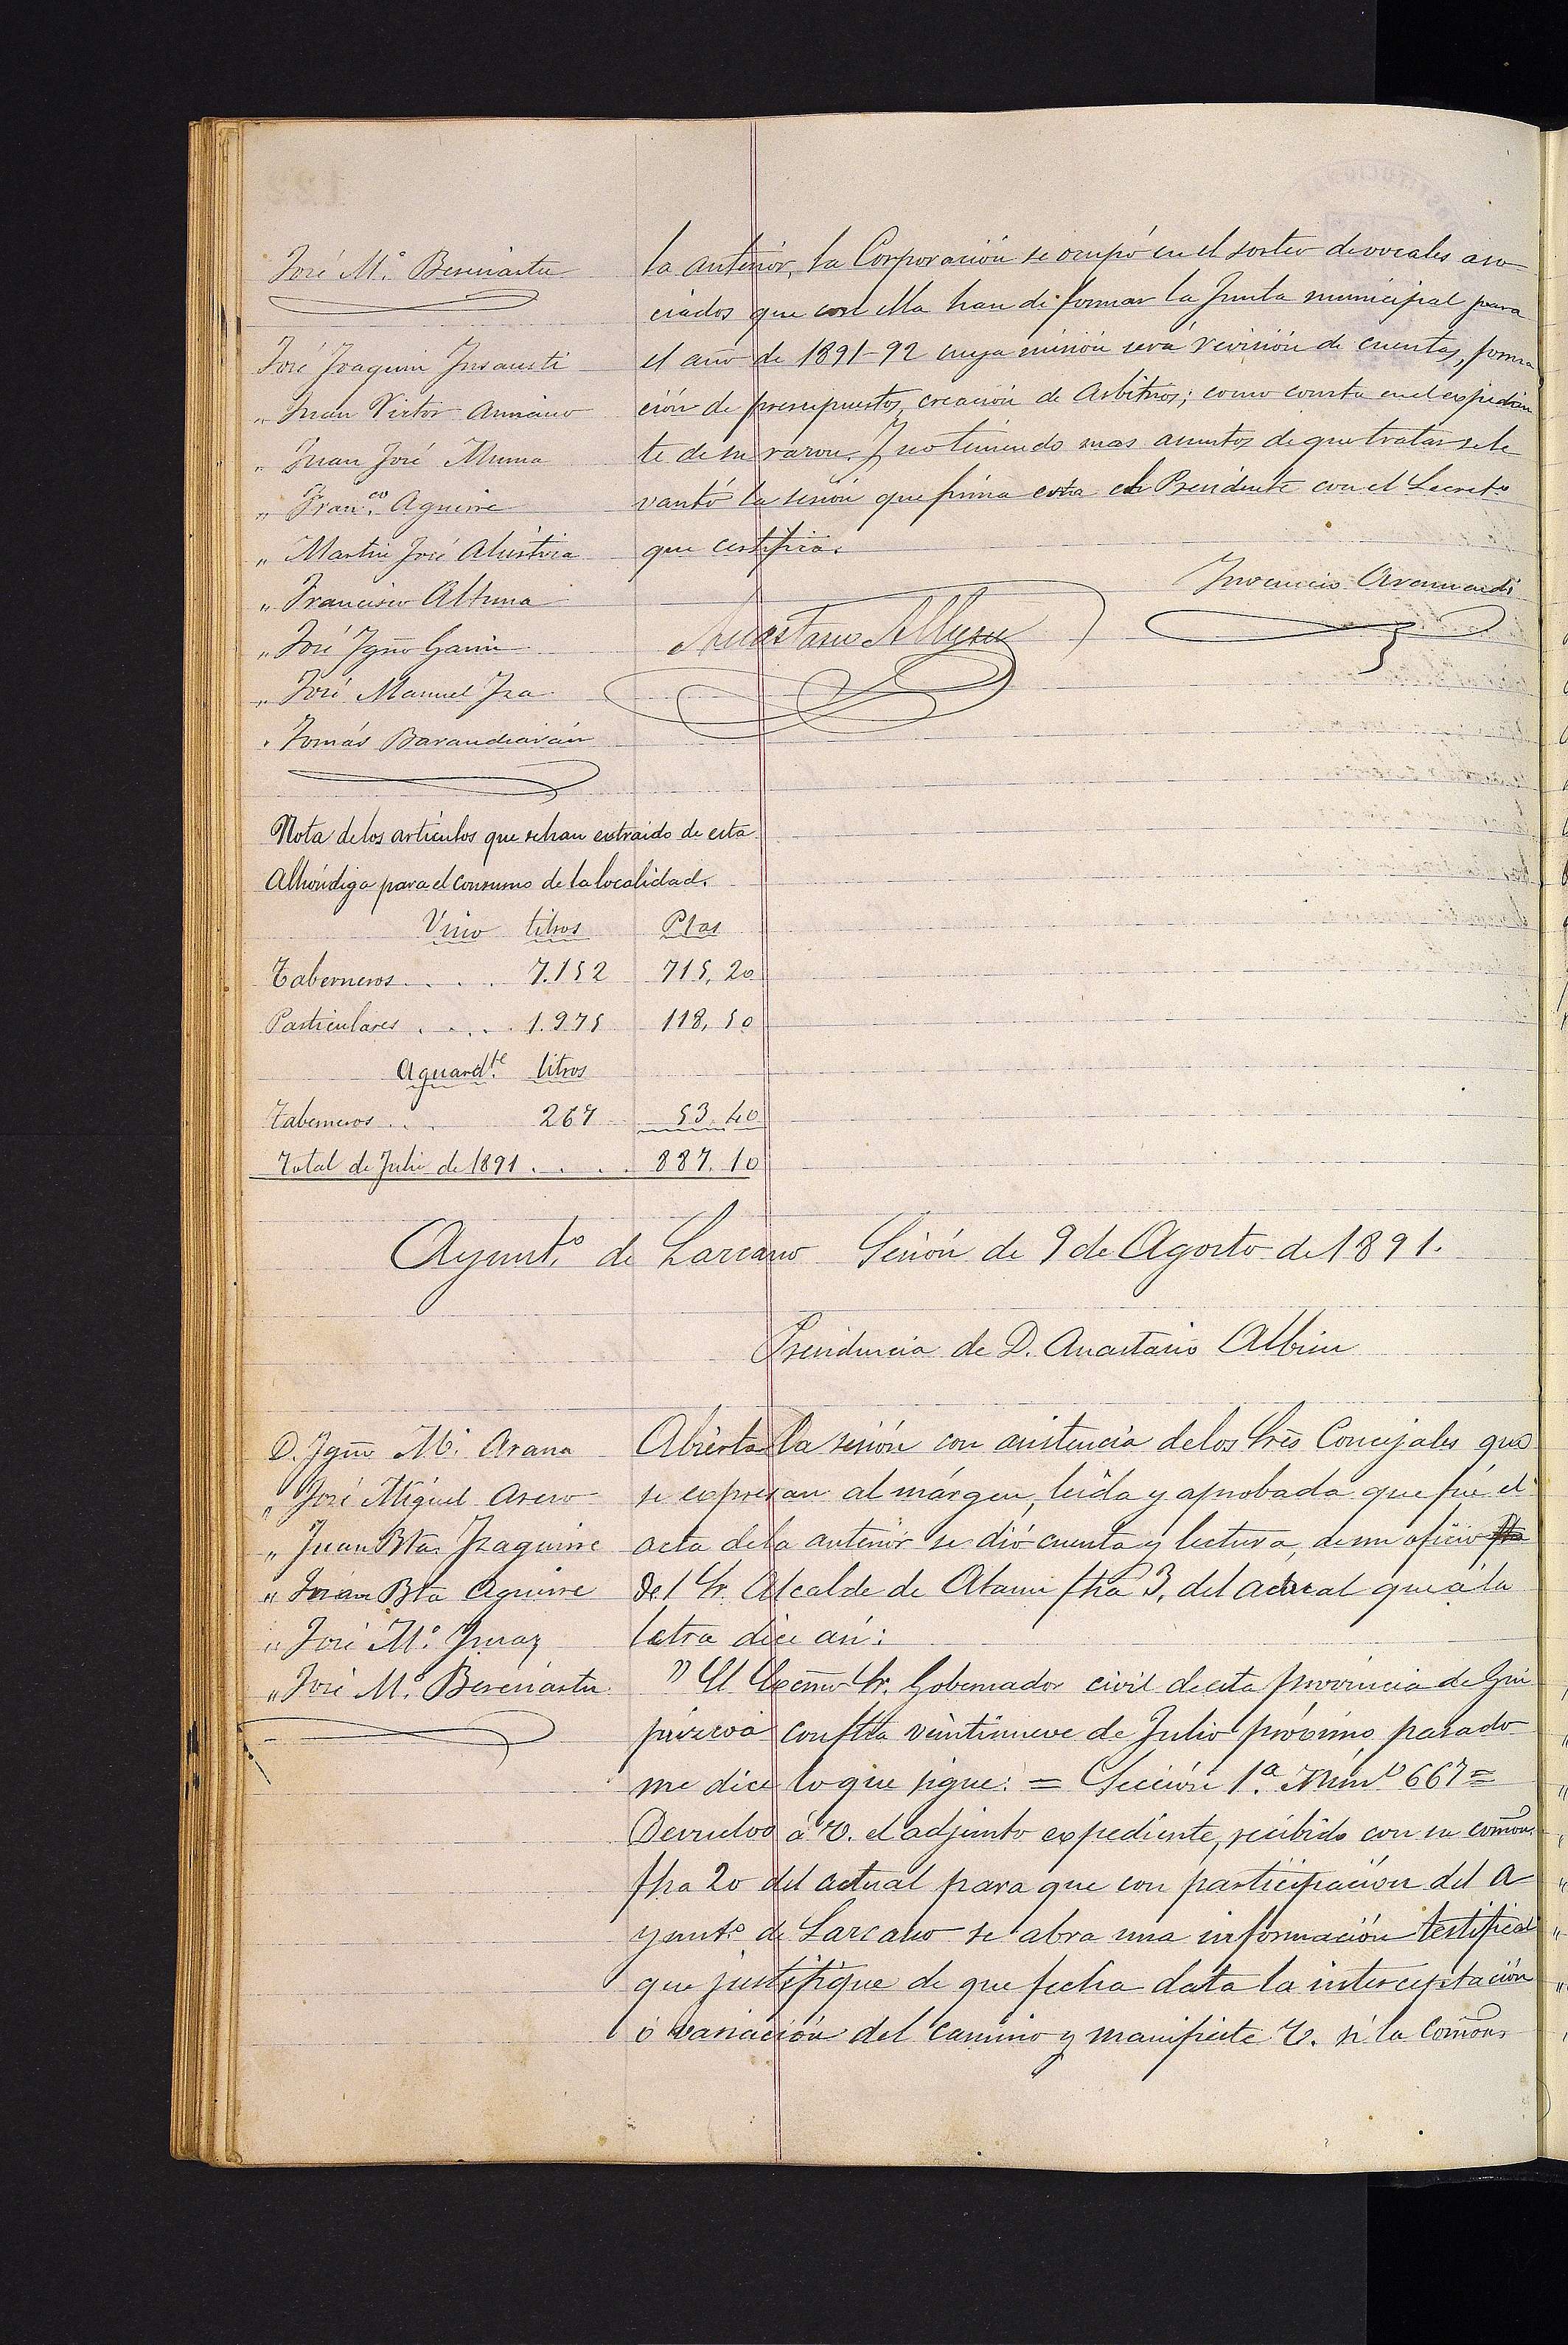 José M.ª Bereciartu
José Joaquin Insausti
" Juan Victor Amiano
" Juan José Munoa
" Fran.co Aguirre
" Martin José Alustiza
" Francisco Altuna
" José Ygño Garin
" José Manuel Iza
" Tomás Barandiarán
la anterior, la Corporación se ocupó en el sorteo de vocales aso
ciados que con ella han de formar la Junta municipal para
el año de 1891-92 cuya misión será revisión de cuentas, forma
ción de presupuestos, creación de Arbitrios; como consta en el expedien
te de su razon. Y no teniendo mas asuntos de que tratar se le
vantó la sesión que firma esta el Presidente con el Secret.º
que certifica.
Inocencio Aramendi
Anastasio Albisu
Nota de los artículos que se han extraido de esta
Alhóndiga para el consumo de la localidad.
Vino litros Ptas
Taberneros . . . . 7.152 715, 20
Particulares . . . . 1.975 118, 50
Aguard.te litros
Taberneros . . 267 53. 40
Total de Julio de 1891 . . . . 887. 10
Ayunt.º de Lazcano Sesión de 9 de Agosto de 1891.
Presidencia de D. Anastasio Albisu
D. Ygño M.ª Arana
" José Miguel Aseno
" Juan Bta. Izaguirre
" Juan Bta Aguirre
" José M.ª Jmaz
" José M.ª Bereciartu
Abierta la sesión con asistencia de los Sres Concejales que
se expresan al márgen, leida y aprobada que fué el
acta de la anterior se dió cuenta y lectura, de un oficio fha
del Sr. Alcalde de Ataun fha 3, del actual que á la
letra dice asi:
" El Excmo Sr. Gobernador civil de esta provincia de Gui
púzcoa con fha veintinueve de Julio próximo pasado
me dice lo que sigue: = Sección 1.ª Núm.º 667 =
Devuelvo á V. el adjunto expediente, recibido con su comon.
fha 20 del actual para que con participación del A
yunt.º de Lazcano se abra una información testifical
que justifique de que fecha data la interceptación
ó variación del camino y manifieste V. si la comon.